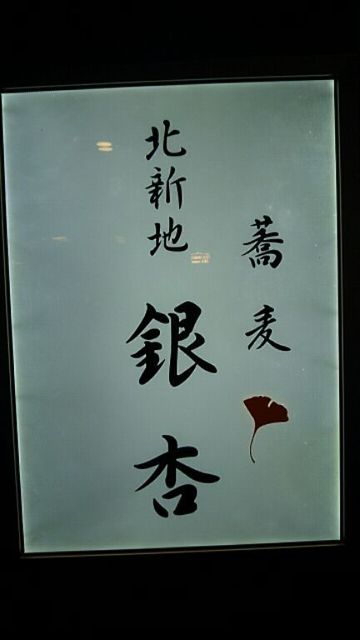 蕎麦
北新地
銀杏